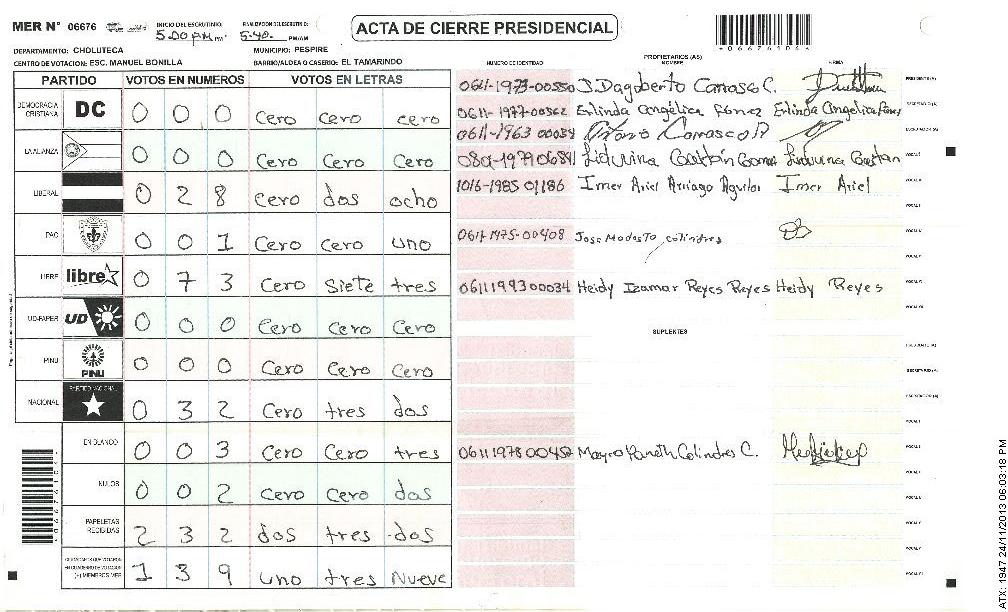 MER N° 06676 INICIO DEL ESCRUTINIO: 5:00 PM PM FINALIZACION DEL ESCRUTINIO: 5:40 PM/AM
ACTA DE CIERRE PRESIDENCIAL
DEPARTAMENTO: CHOLUTECA MUNICIPIO: PESPIRE
CENTRO DE VOTACION: ESC. MANUEL BONILLA BARRIO/ALDEA O CASERIO: EL TAMARINDO
NUMERO DE IDENTIDAD PROPIETARIOS (AS) NOMBRE FIRMA
PARTIDO VOTOS EN NUMEROS VOTOS EN LETRAS
DEMOCRACIA CRISTIANA DC 0 0 0 cero cero cero
LA ALIANZA 0 0 0 Cero Cero Cero
LIBERAL 0 2 8 Cero dos ocho
PAC 0 0 1 Cero Cero uno
LIBRE libre 0 7 3 Cero Siete tres
UD-FAPER UD 0 0 0 Cero Cero Cero
PINU PINU 0 0 0 Cero Cero Cero
NACIONAL PARTIDO NACIONAL 0 3 2 Cero tres dos
EN BLANCO 0 0 3 Cero Cero tres
NULOS 0 0 2 Cero Cero dos
PAPELETAS RECIBIDAS 2 3 2 dos tres dos
CIUDADANOS QUE VOTARON EN CUADERNO DE VOTACION (+) MIEMBROS MER 1 3 9 uno tres Nueve
0611-1973-00550 J. Dagoberto Carrasco C. PRESIDENTE (A)
0611-1977-00562 Erlinda Angélica Erlinda Angelica SECRETARIO (A)
0611-1963 00039 Carrasco ESCRUTADOR (A)
Liduvina Liduvina VOCAL I
1016-1985 01186 Imer Ariel Arriaga Aguilar Imer Ariel
0611-1975-00408 Jose Modesto Colindres
0611199300034 Heidy Izamar Reyes Reyes Heidy Reyes
SUPLENTES
PRESIDENTE (A)
SECRETARIO (A)
ESCRUTADOR (A)
0611197800452 Colindres C.
ATX: 1947 24/11/2013 06:03:18 PM